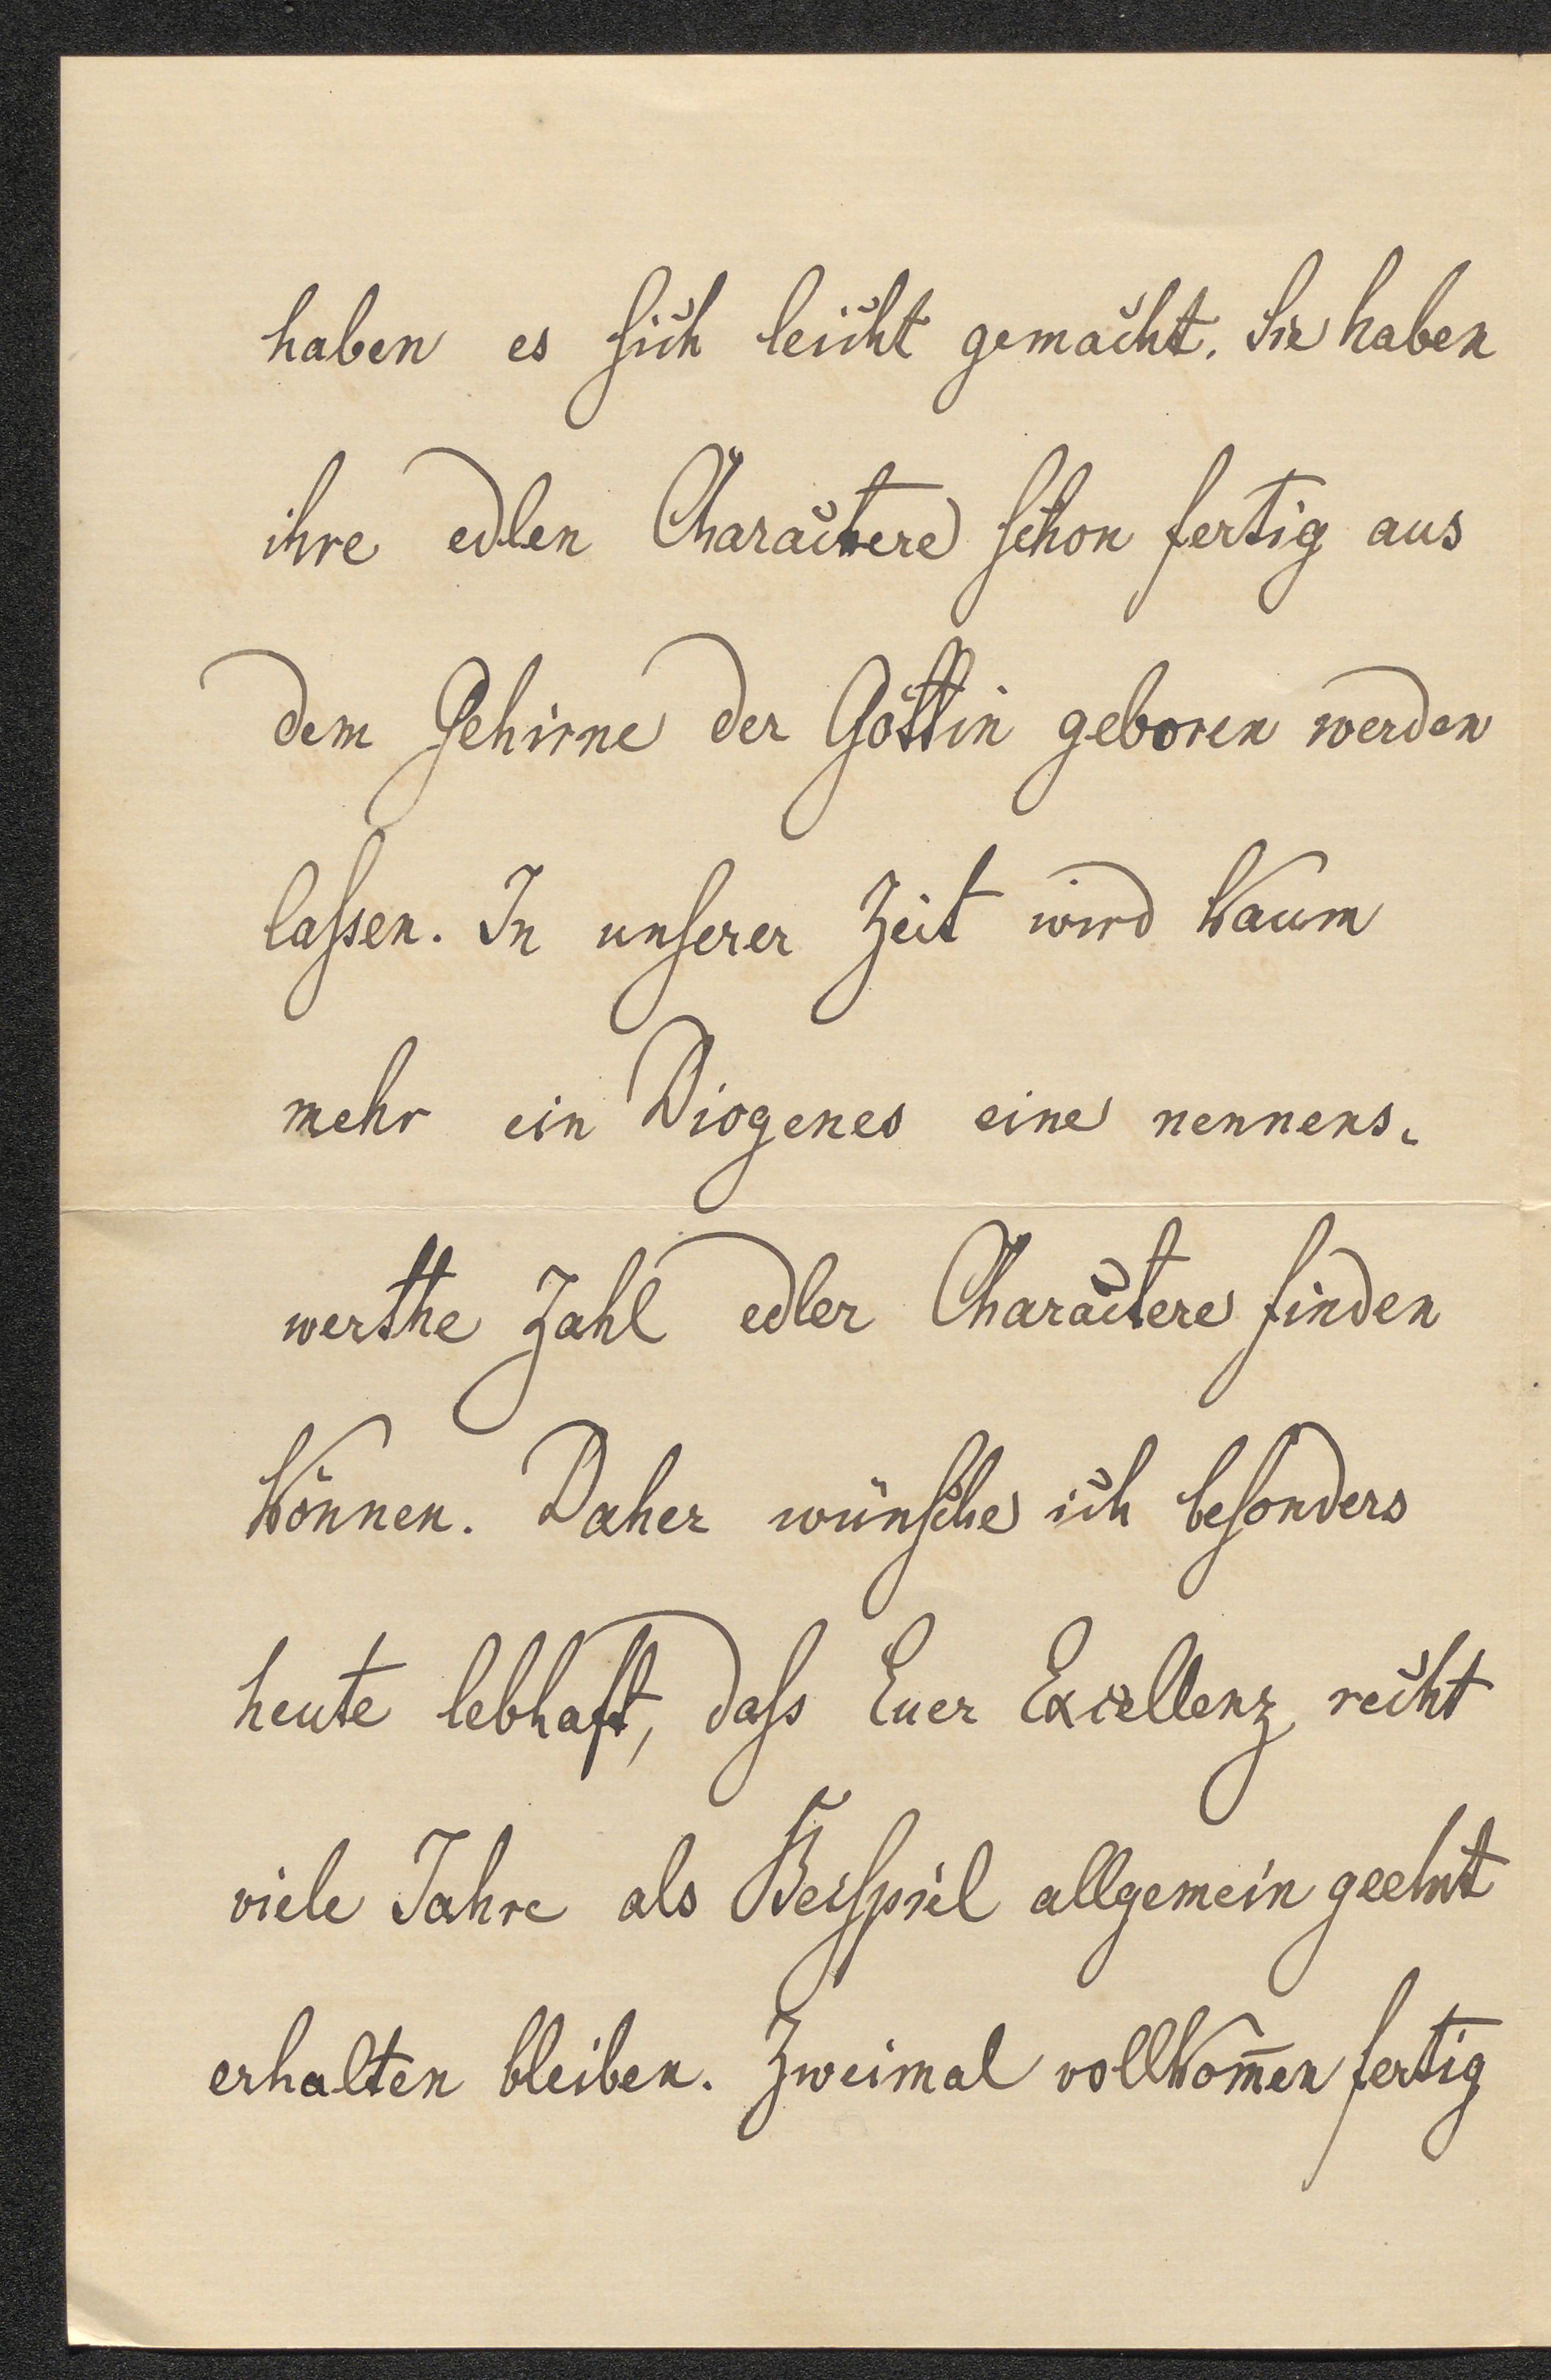 haben es sich leicht gemacht. Sie haben
ihre edlen Charactere schon fertig aus
dem Gehirne der Göttin geboren werden
laſsen. In unserer Zeit wird kaum
mehr ein Diogenes eine nennens-
werthe Zahl edler Charactere finden
können. Daher wünsche ich besonders
heute lebhaft, daſs Euer Excellenz recht
viele Jahre als Beispiel allgemein geehrt
erhalten bleiben. Zweimal vollkom̄en fertig